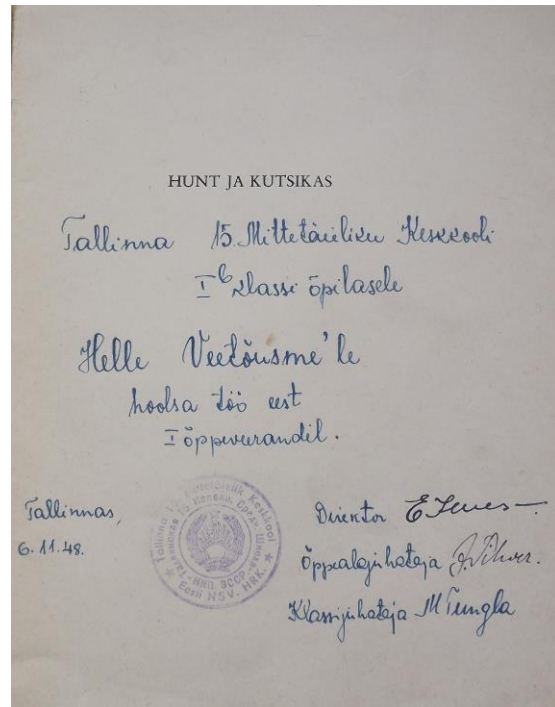 HUNT JA KUTSIKAS
Tallinna 15. Mittetäieliku Keskkooli
I b klassi õpilasele
Helle Veetõusme'le
hoolsa töö eest
I õppeveerandil.
Tallinnas,
6.11.48.
Tallinna 15 Mittetäielik Keskkool
Таллинская 15 Неполн. Средн. Школа
НКП. ЭССР
Eesti NSV. HRK.
Direktor
Õppealajuhataja
Klassijuhataja M Tungla